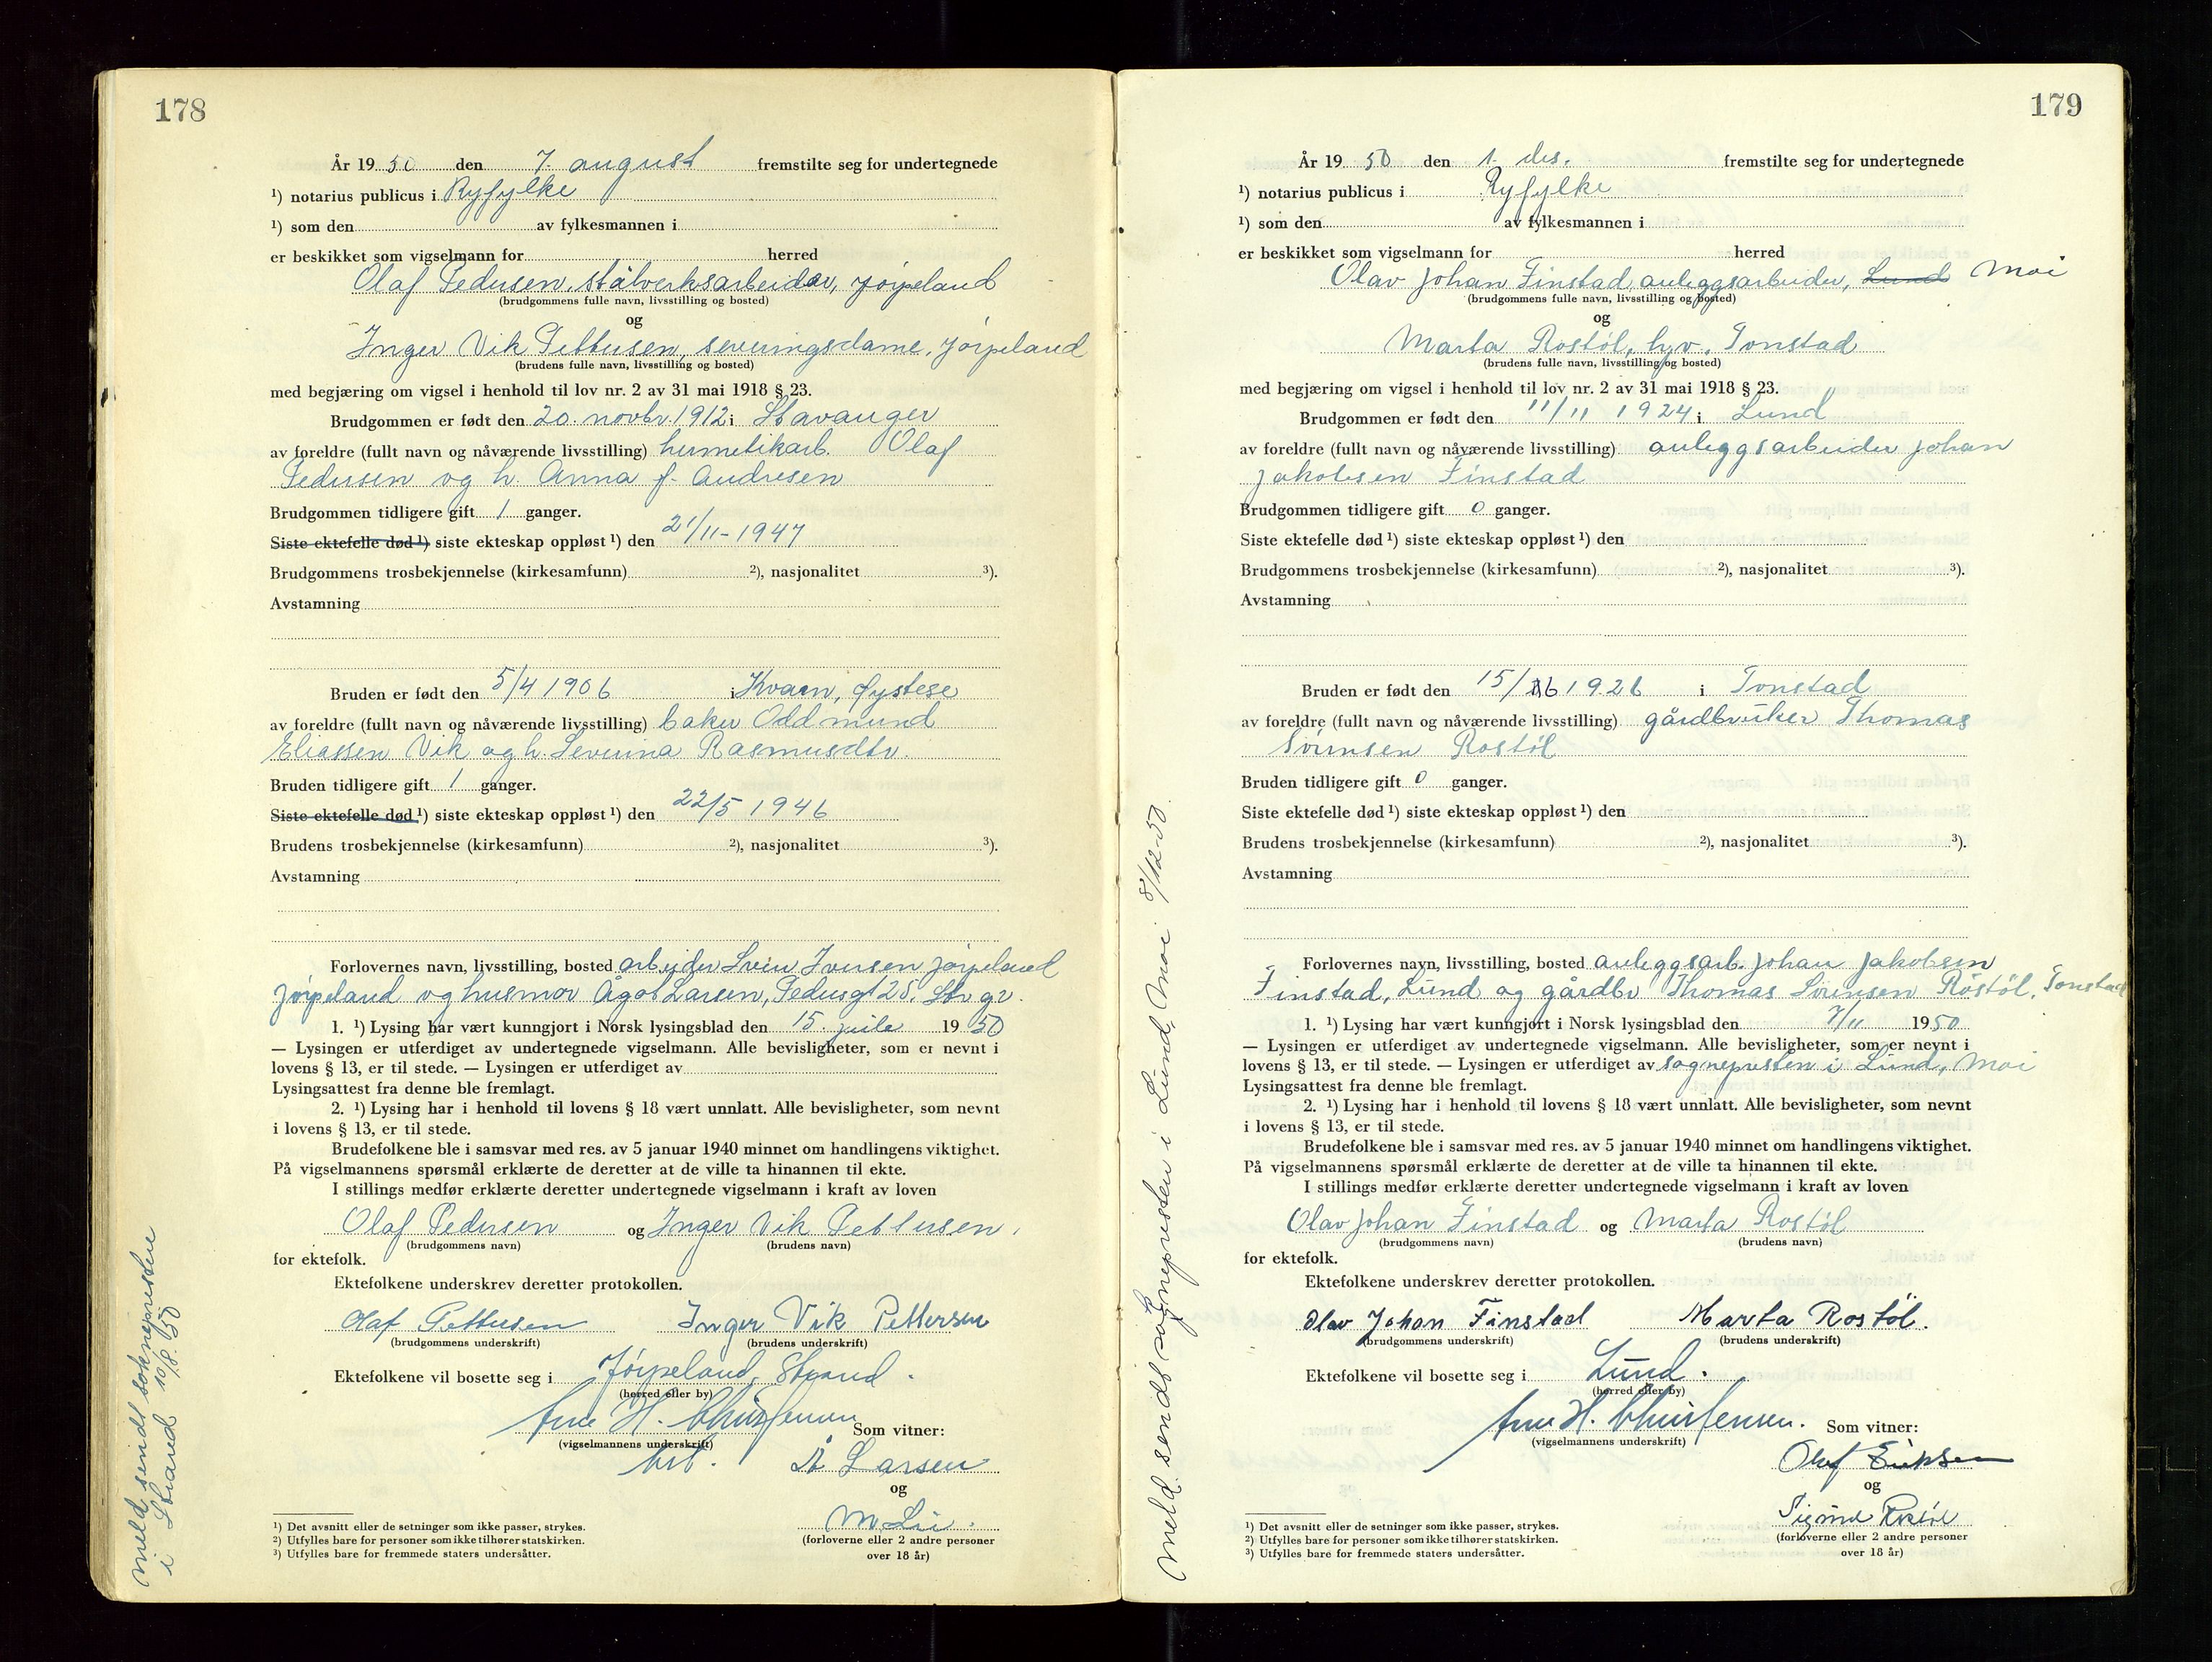 178
År 1950 den 7. august fremstilte seg for undertegnede
¹) notarius publicus i Ryfylke
¹) som den av fylkesmannen i
er beskikket som vigselmann for herred
Olaf Pedersen, stålverksarbeider, Jørpeland
(brudgommens fulle navn, livsstilling og bosted)
og
Inger Vik Pettersen, serveringsdame, Jørpeland
(brudens fulle navn, livsstilling og bosted)
med begjæring om vigsel i henhold til lov nr. 2 av 31 mai 1918 § 23.
Brudgommen er født den 20. novbr. 1912 i Stavanger
av foreldre (fullt navn og nåværende livsstilling) hermetikarb. Olaf
Pedersen og h. Anna f. Andresen
Brudgommen tidligere gift 1 ganger.
Siste ektefelle død ¹) siste ekteskap oppløst ¹) den 21/11-1947
Brudgommens trosbekjennelse (kirkesamfunn) ²), nasjonalitet ³).
Avstamning
Bruden er født den 5/4 1906 i Kvam, Øystese
av foreldre (fullt navn og nåværende livsstilling) baker Oddmund
Eliassen Vik og h. Severina Rasmusdtr.
Bruden tidligere gift 1 ganger.
Siste ektefelle død ¹) siste ekteskap oppløst ¹) den 22/5 1946
Brudens trosbekjennelse (kirkesamfunn) ²), nasjonalitet ³).
Avstamning
Forlovernes navn, livsstilling, bosted arbeider Svein Iversen Jørpeland
Jørpeland og husmor Ågot Larsen, Pedersgt 25, Stvgr.
1. ¹) Lysing har vært kunngjort i Norsk lysingsblad den 15. juli 1950
— Lysingen er utferdiget av undertegnede vigselmann. Alle bevisligheter, som er nevnt i
lovens § 13, er til stede. — Lysingen er utferdiget av
Lysingsattest fra denne ble fremlagt.
2. ¹) Lysing har i henhold til lovens § 18 vært unnlatt. Alle bevisligheter, som nevnt
i lovens § 13, er til stede.
Brudefolkene ble i samsvar med res. av 5 januar 1940 minnet om handlingens viktighet.
På vigselmannens spørsmål erklærte de deretter at de ville ta hinannen til ekte.
I stillings medfør erklærte deretter undertegnede vigselmann i kraft av loven
Olaf Pedersen og Inger Vik Pettersen,
(brudgommens navn) (brudens navn)
for ektefolk.
Ektefolkene underskrev deretter protokollen.
Olaf Pettersen Inger Vik Pettersen
(brudgommens underskrift) (brudens underskrift)
Ektefolkene vil bosette seg i Jørpeland, Strand.
(herred eller by)
H. Christensen
Som vitner:
(vigselmannens underskrift)
Å Larsen
og
M. Lie.
(forloverne eller 2 andre personer
over 18 år)
¹) Det avsnitt eller de setninger som ikke passer, strykes.
²) Utfylles bare for personer som ikke tilhører statskirken.
³) Utfylles bare for fremmede staters undersåtter.
meld sendt soknepresten
i Strand 10/8.50
179
År 1950 den 1. des. fremstilte seg for undertegnede
¹) notarius publicus i Ryfylke
¹) som den av fylkesmannen i
er beskikket som vigselmann for herred
Olav Johan Finstad, anleggsarbeider, Lund Moi
(brudgommens fulle navn, livsstilling og bosted)
og
Marta Rostøl, hv., Tonstad
(brudens fulle navn, livsstilling og bosted)
med begjæring om vigsel i henhold til lov nr. 2 av 31 mai 1918 § 23.
Brudgommen er født den 11/11 1924 i Lund
av foreldre (fullt navn og nåværende livsstilling) anleggsarbeider Johan
Jakobsen Finstad
Brudgommen tidligere gift 0 ganger.
Siste ektefelle død ¹) siste ekteskap oppløst ¹) den
Brudgommens trosbekjennelse (kirkesamfunn) ²), nasjonalitet ³).
Avstamning
Bruden er født den 15/6 1926 i Tonstad
av foreldre (fullt navn og nåværende livsstilling) gårdbruker Thomas
Sørensen Rostøl
Bruden tidligere gift 0 ganger.
Siste ektefelle død ¹) siste ekteskap oppløst ¹) den
Brudens trosbekjennelse (kirkesamfunn) ²), nasjonalitet ³).
Avstamning
Forlovernes navn, livsstilling, bosted anleggsarb. Johan Jakobsen
Finstad, Lund og gårdbr Thomas Sørensen Rostøl, Tonstad
1. ¹) Lysing har vært kunngjort i Norsk lysingsblad den 7/11 1950
— Lysingen er utferdiget av undertegnede vigselmann. Alle bevisligheter, som er nevnt i
lovens § 13, er til stede. — Lysingen er utferdiget av sognepresten i Lund, Moi
Lysingsattest fra denne ble fremlagt.
2. ¹) Lysing har i henhold til lovens § 18 vært unnlatt. Alle bevisligheter, som nevnt
i lovens § 13, er til stede.
Brudefolkene ble i samsvar med res. av 5 januar 1940 minnet om handlingens viktighet.
På vigselmannens spørsmål erklærte de deretter at de ville ta hinannen til ekte.
I stillings medfør erklærte deretter undertegnede vigselmann i kraft av loven
Olav Johan Finstad og Marta Rostøl
(brudgommens navn) (brudens navn)
for ektefolk.
Ektefolkene underskrev deretter protokollen.
Olav Johan Finstad Marta Rostøl.
(brudgommens underskrift) (brudens underskrift)
Ektefolkene vil bosette seg i Lund.
(herred eller by)
H. Christensen.
Som vitner:
(vigselmannens underskrift)
Olaf Eriksen
og
Sigmund Rostøl
(forloverne eller 2 andre personer
over 18 år)
¹) Det avsnitt eller de setninger som ikke passer, strykes.
²) Utfylles bare for personer som ikke tilhører statskirken.
³) Utfylles bare for fremmede staters undersåtter.
Meld. sendt sognepresten i Lund, Moi 8/12-50.